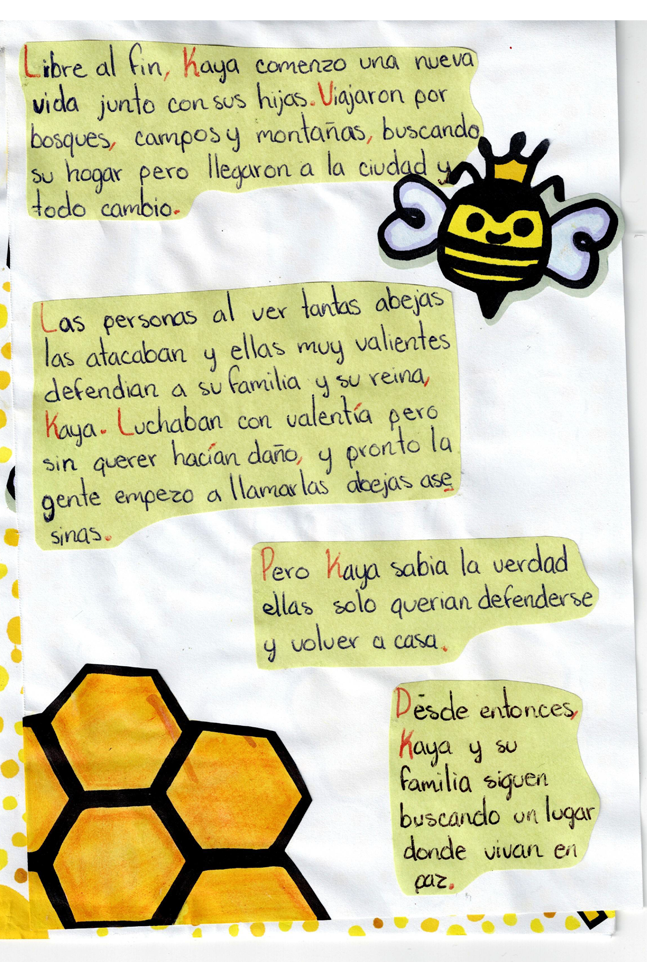 Libre al fin, Kaya comenzo una nueva
vida junto con sus hijas. Viajaron por
bosques, campos y montañas, buscando
su hogar pero llegaron a la ciudad y
todo cambio.
Las personas al ver tantas abejas
las atacaban y ellas muy valientes
defendian a su familia y su reina,
Kaya. Luchaban con valentía pero
sin querer hacían daño, y pronto la
gente empezo a llamarlas abejas ase
sinas.
Pero Kaya sabia la verdad
ellas solo querian defenderse
y volver a casa.
Desde entonces,
Kaya y su
familia siguen
buscando un lugar
donde vivan en
paz.